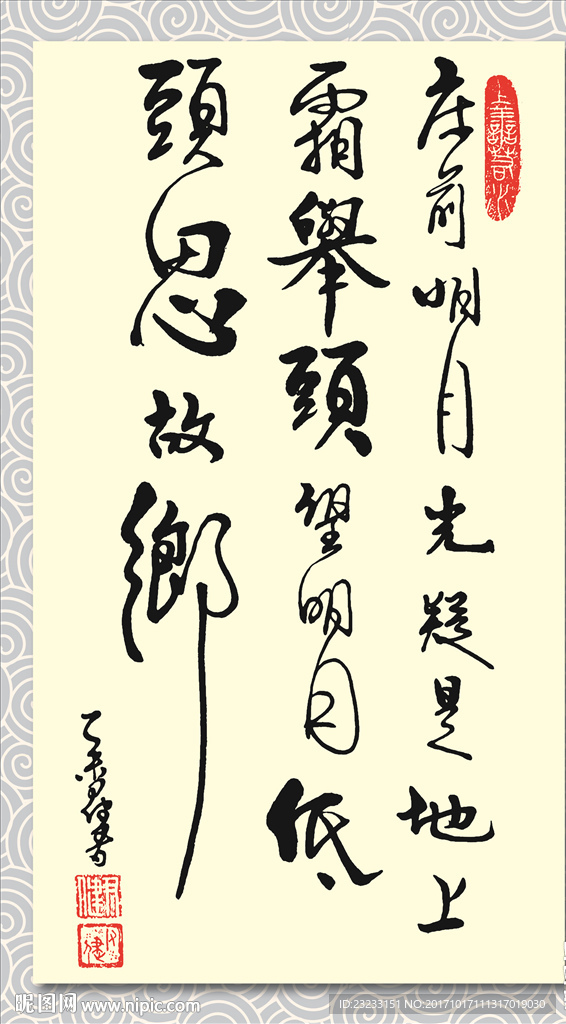 上善若水
床前明月光疑是地上
霜舉頭望明月低
頭思故鄉
昵图网 www.nipic.com
ID:23233151 NO:20171017111317019030